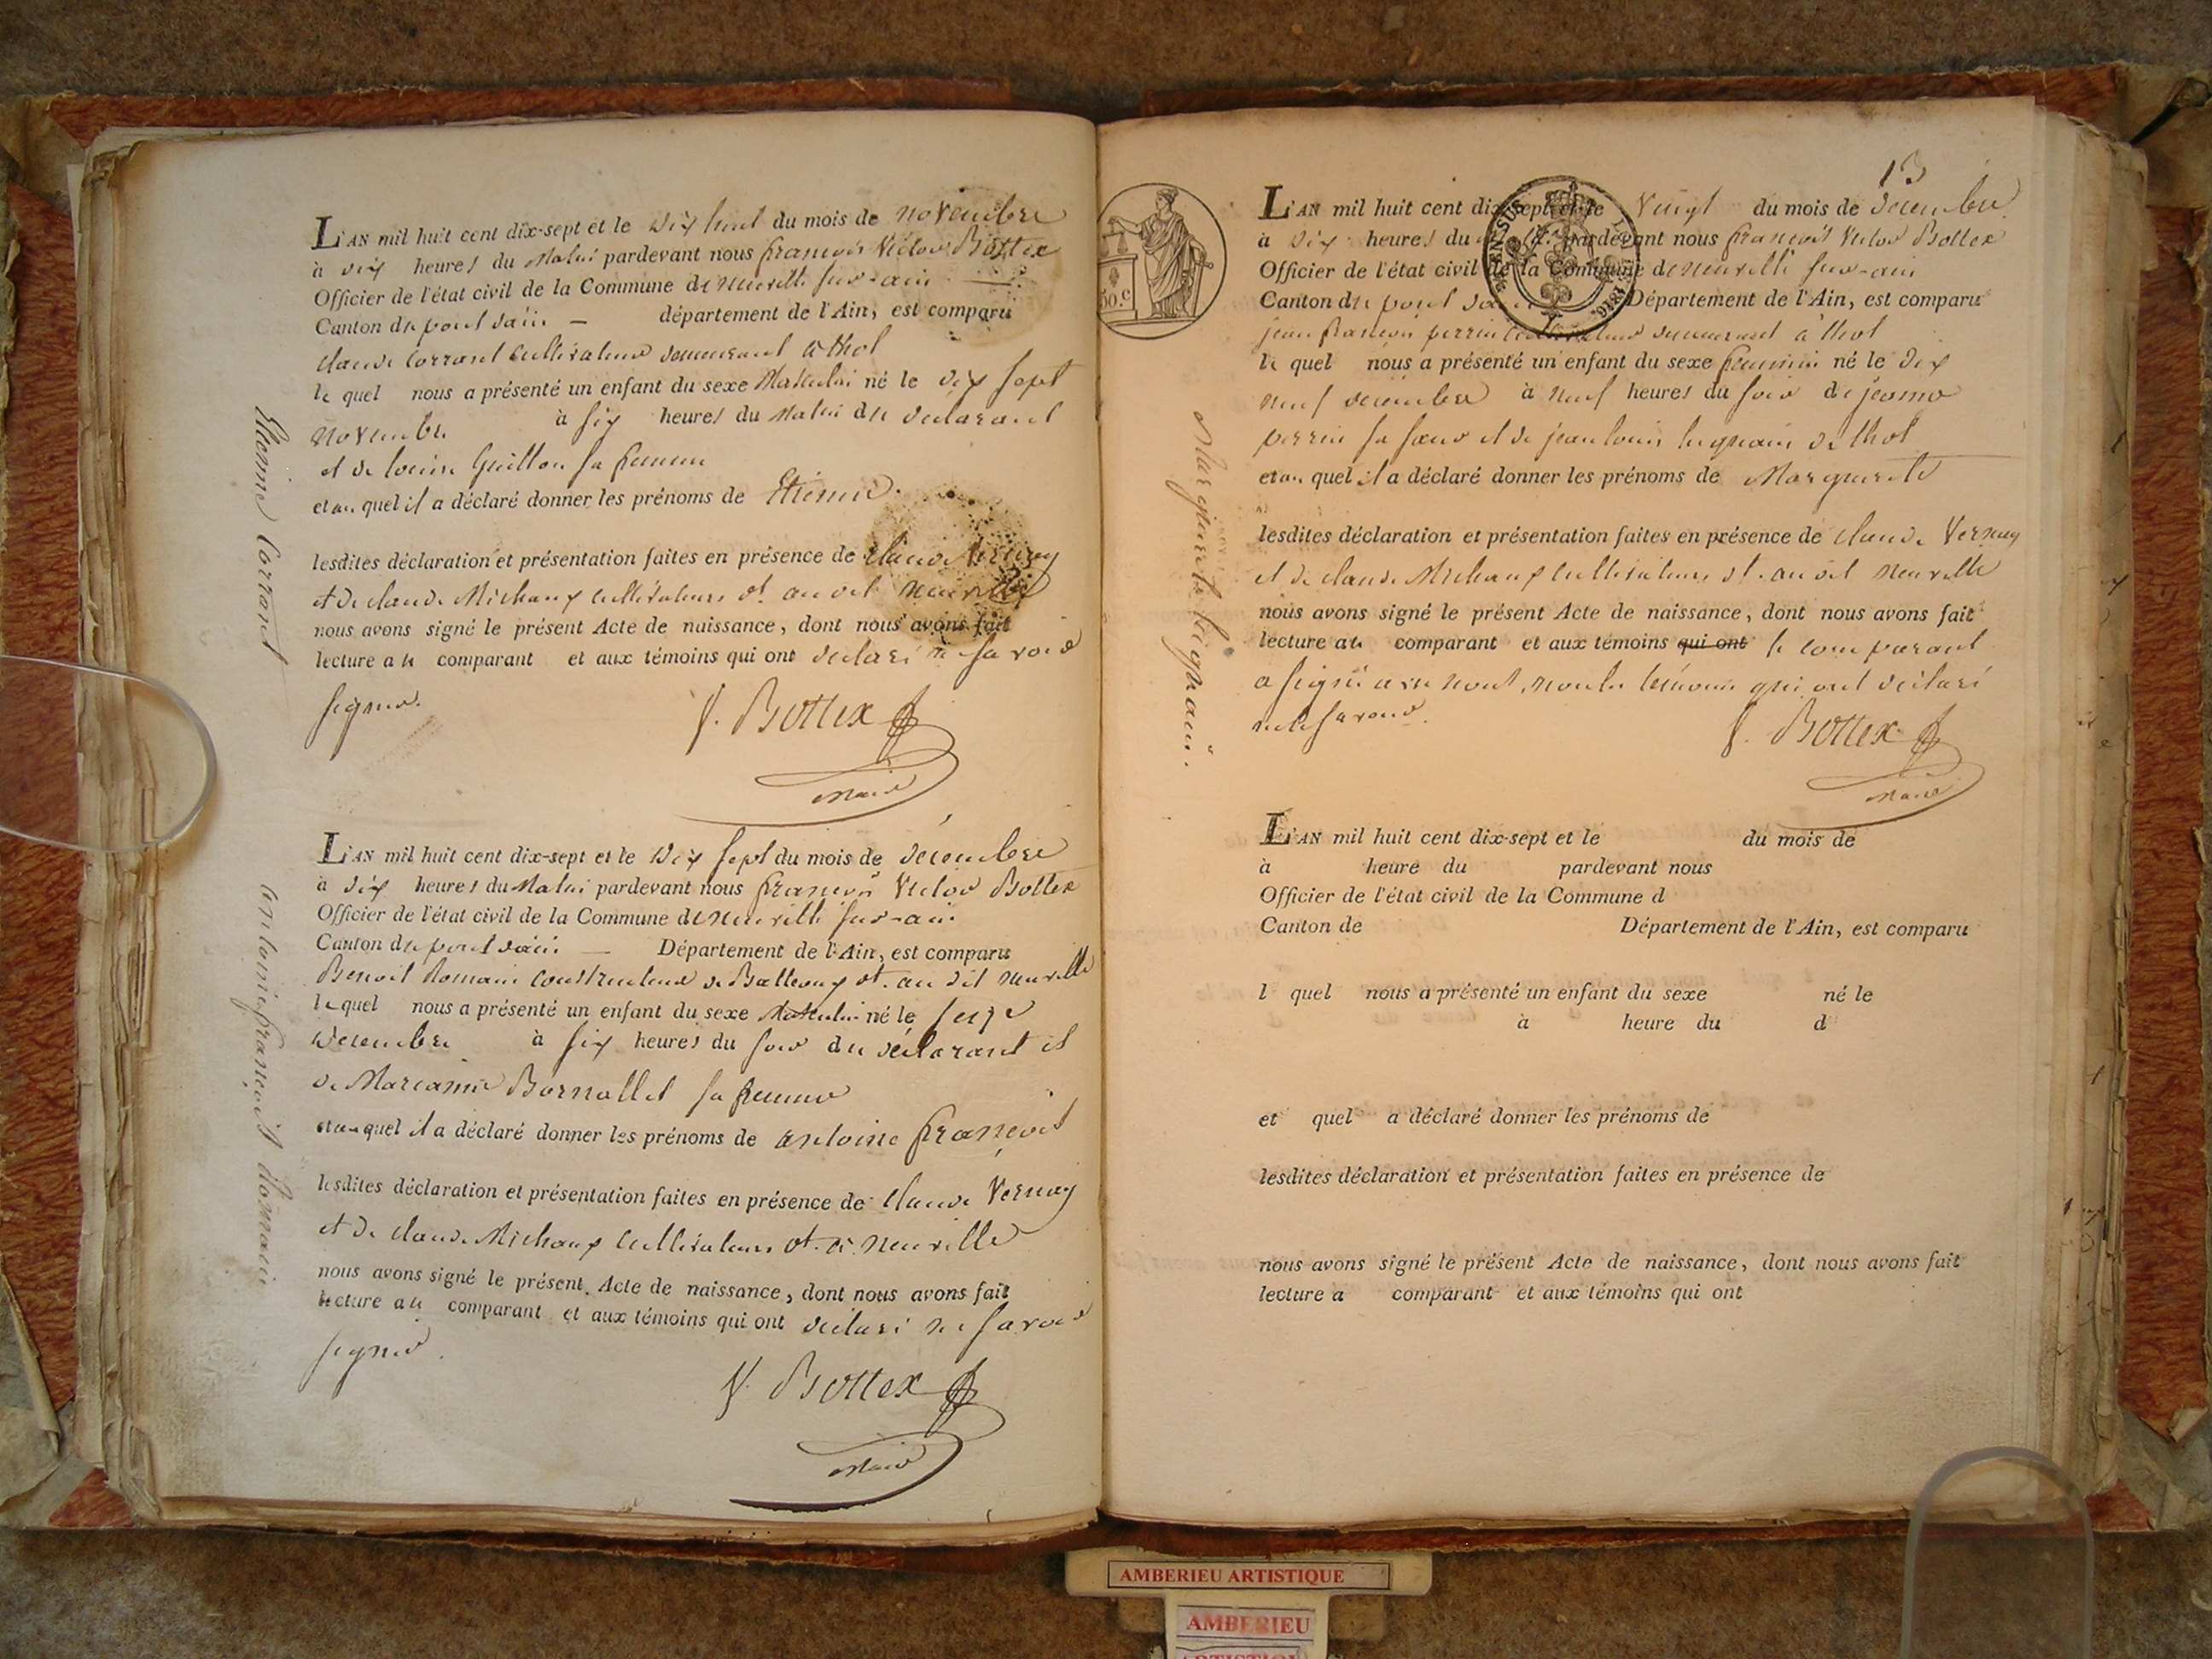 L'AN mil huit cent dix-sept et le dix huit du mois de novembre
à dix heures du Matin pardevant nous françois Victor Bottex
Officier de l'état civil de la Commune de neuville sur-ain
Canton de pont dain département de l'Ain, est comparu
claude Corrant cultivateur demeurant à thol
le quel nous a présenté un enfant du sexe Masculin né le dix sept
novembre à six heures du Matin du déclarant
et de louise Guillon sa femme
et au quel il a déclaré donner les prénoms de Etienne.
lesdites déclaration et présentation faites en présence de claude Vernay
et de claude Michaux cultivateurs dt. au dit neuville
nous avons signé le présent Acte de naissance, dont nous avons fait
lecture au comparant et aux témoins qui ont déclaré ne savoir
signer.
f. Bottex
Maire
Etienne Corrant
L'AN mil huit cent dix-sept et le dix sept du mois de décembre
à dix heures du Matin pardevant nous françois Victor Bottex
Officier de l'état civil de la Commune de neuville sur-ain
Canton de pont dain Département de l'Ain, est comparu
Benoit Romain constructeur de Batteaux dt. au dit neuville
le quel nous a présenté un enfant du sexe Masculin né le seize
décembre à six heures du soir du déclarant et
de Marianne Bornallet sa femme
et au quel il a déclaré donner les prénoms de antoine françois
lesdites déclaration et présentation faites en présence de claude Vernay
et de claude Michaux cultivateurs dt. à neuville
nous avons signé le présent Acte de naissance, dont nous avons fait
lecture au comparant et aux témoins qui ont déclaré ne savoir
signer.
f. Bottex
Maire
antoine françois Romain
13
50.c
L'AN mil huit cent dix-sept et le vingt du mois de décembre
à dix heures du pardevant nous françois Victor Bottex
Officier de l'état civil de la Commune de neuville sur-ain
Canton de pont dain Département de l'Ain, est comparu
jean françois perrin cultivateur demeurant à thol
le quel nous a présenté un enfant du sexe feminin né le dix
neuf décembre à neuf heures du soir de jeanne
perrin sa sœur et de jean louis de thol
et au quel il a déclaré donner les prénoms de Marguerite
lesdites déclaration et présentation faites en présence de claude Vernay
et de claude Michaux cultivateurs dt. au dit neuville
nous avons signé le présent Acte de naissance, dont nous avons fait
lecture au comparant et aux témoins qui ont le comparant
a signé avec nous, non les témoins qui ont déclaré
ne le savoir.
f. Bottex
Maire
Marguerite
L'AN mil huit cent dix-sept et le du mois de
à heure du pardevant nous
Officier de l'état civil de la Commune d
Canton de Département de l'Ain, est comparu
l quel nous a présenté un enfant du sexe né le
à heure du d
et quel a déclaré donner les prénoms de
lesdites déclaration et présentation faites en présence de
nous avons signé le présent Acte de naissance, dont nous avons fait
lecture a comparant et aux témoins qui ont
AMBERIEU ARTISTIQUE
AMBERIEU
ARTISTIQU